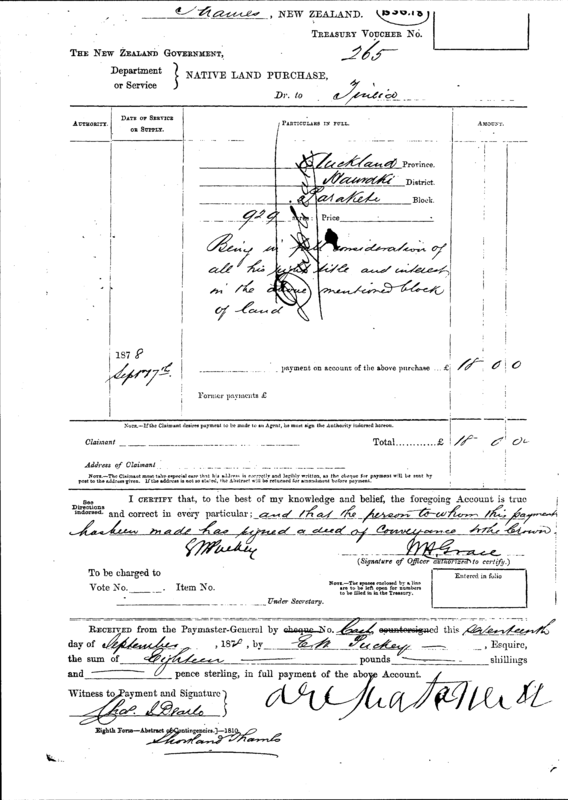 Thames, NEW ZEALAND.
TREASURY VOUCHER NO.
265
THE NEW ZEALAND GOVERNMENT,
Department
or Service } NATIVE LAND PURCHASE,
Dr. to
AUTHORITY. DATE OF SERVICE OR SUPPLY. PARTICULARS IN FULL. AMOUNT.
Auckland Province.
Hauraki District.
Block.
929 Acres: Price
Being in full consideration of
all his right title and interest
in the above mentioned block
of land
1878
Septr 17th. payment on account of the above purchase ... £ 18 0 0
Former payments £
NOTE.—If the Claimant desires payment to be made to an Agent, he must sign the Authority indorsed hereon.
Claimant Total............£ 18 0 0
Address of Claimant
NOTE.—The Claimant must take especial care that his address is correctly and legibly written, as the cheque for payment will be sent by
post to the address given. If the address is not so stated, the Abstract will be returned for amendment before payment.
See Directions indorsed.
I CERTIFY that, to the best of my knowledge and belief, the foregoing Account is true
and correct in every particular; and that the person to whom this payment
has been made has signed a deed of Conveyance to the Crown.
E W Puckey
(Signature of Officer authorized to certify.)
To be charged to
Vote No. . Item No.
NOTE.—The spaces enclosed by a line
are to be left open for numbers
to be filled in in the Treasury.
Entered in folio
Under Secretary.
RECEIVED from the Paymaster-General by cheque No. Cash countersigned this seventeenth
day of September, 1878, by E W Puckey, Esquire,
the sum of Eighteen pounds shillings
and pence sterling, in full payment of the above Account.
Witness to Payment and Signature }
Eighth Form—Abstract of Contingencies.]—1810.
Shortland Thames